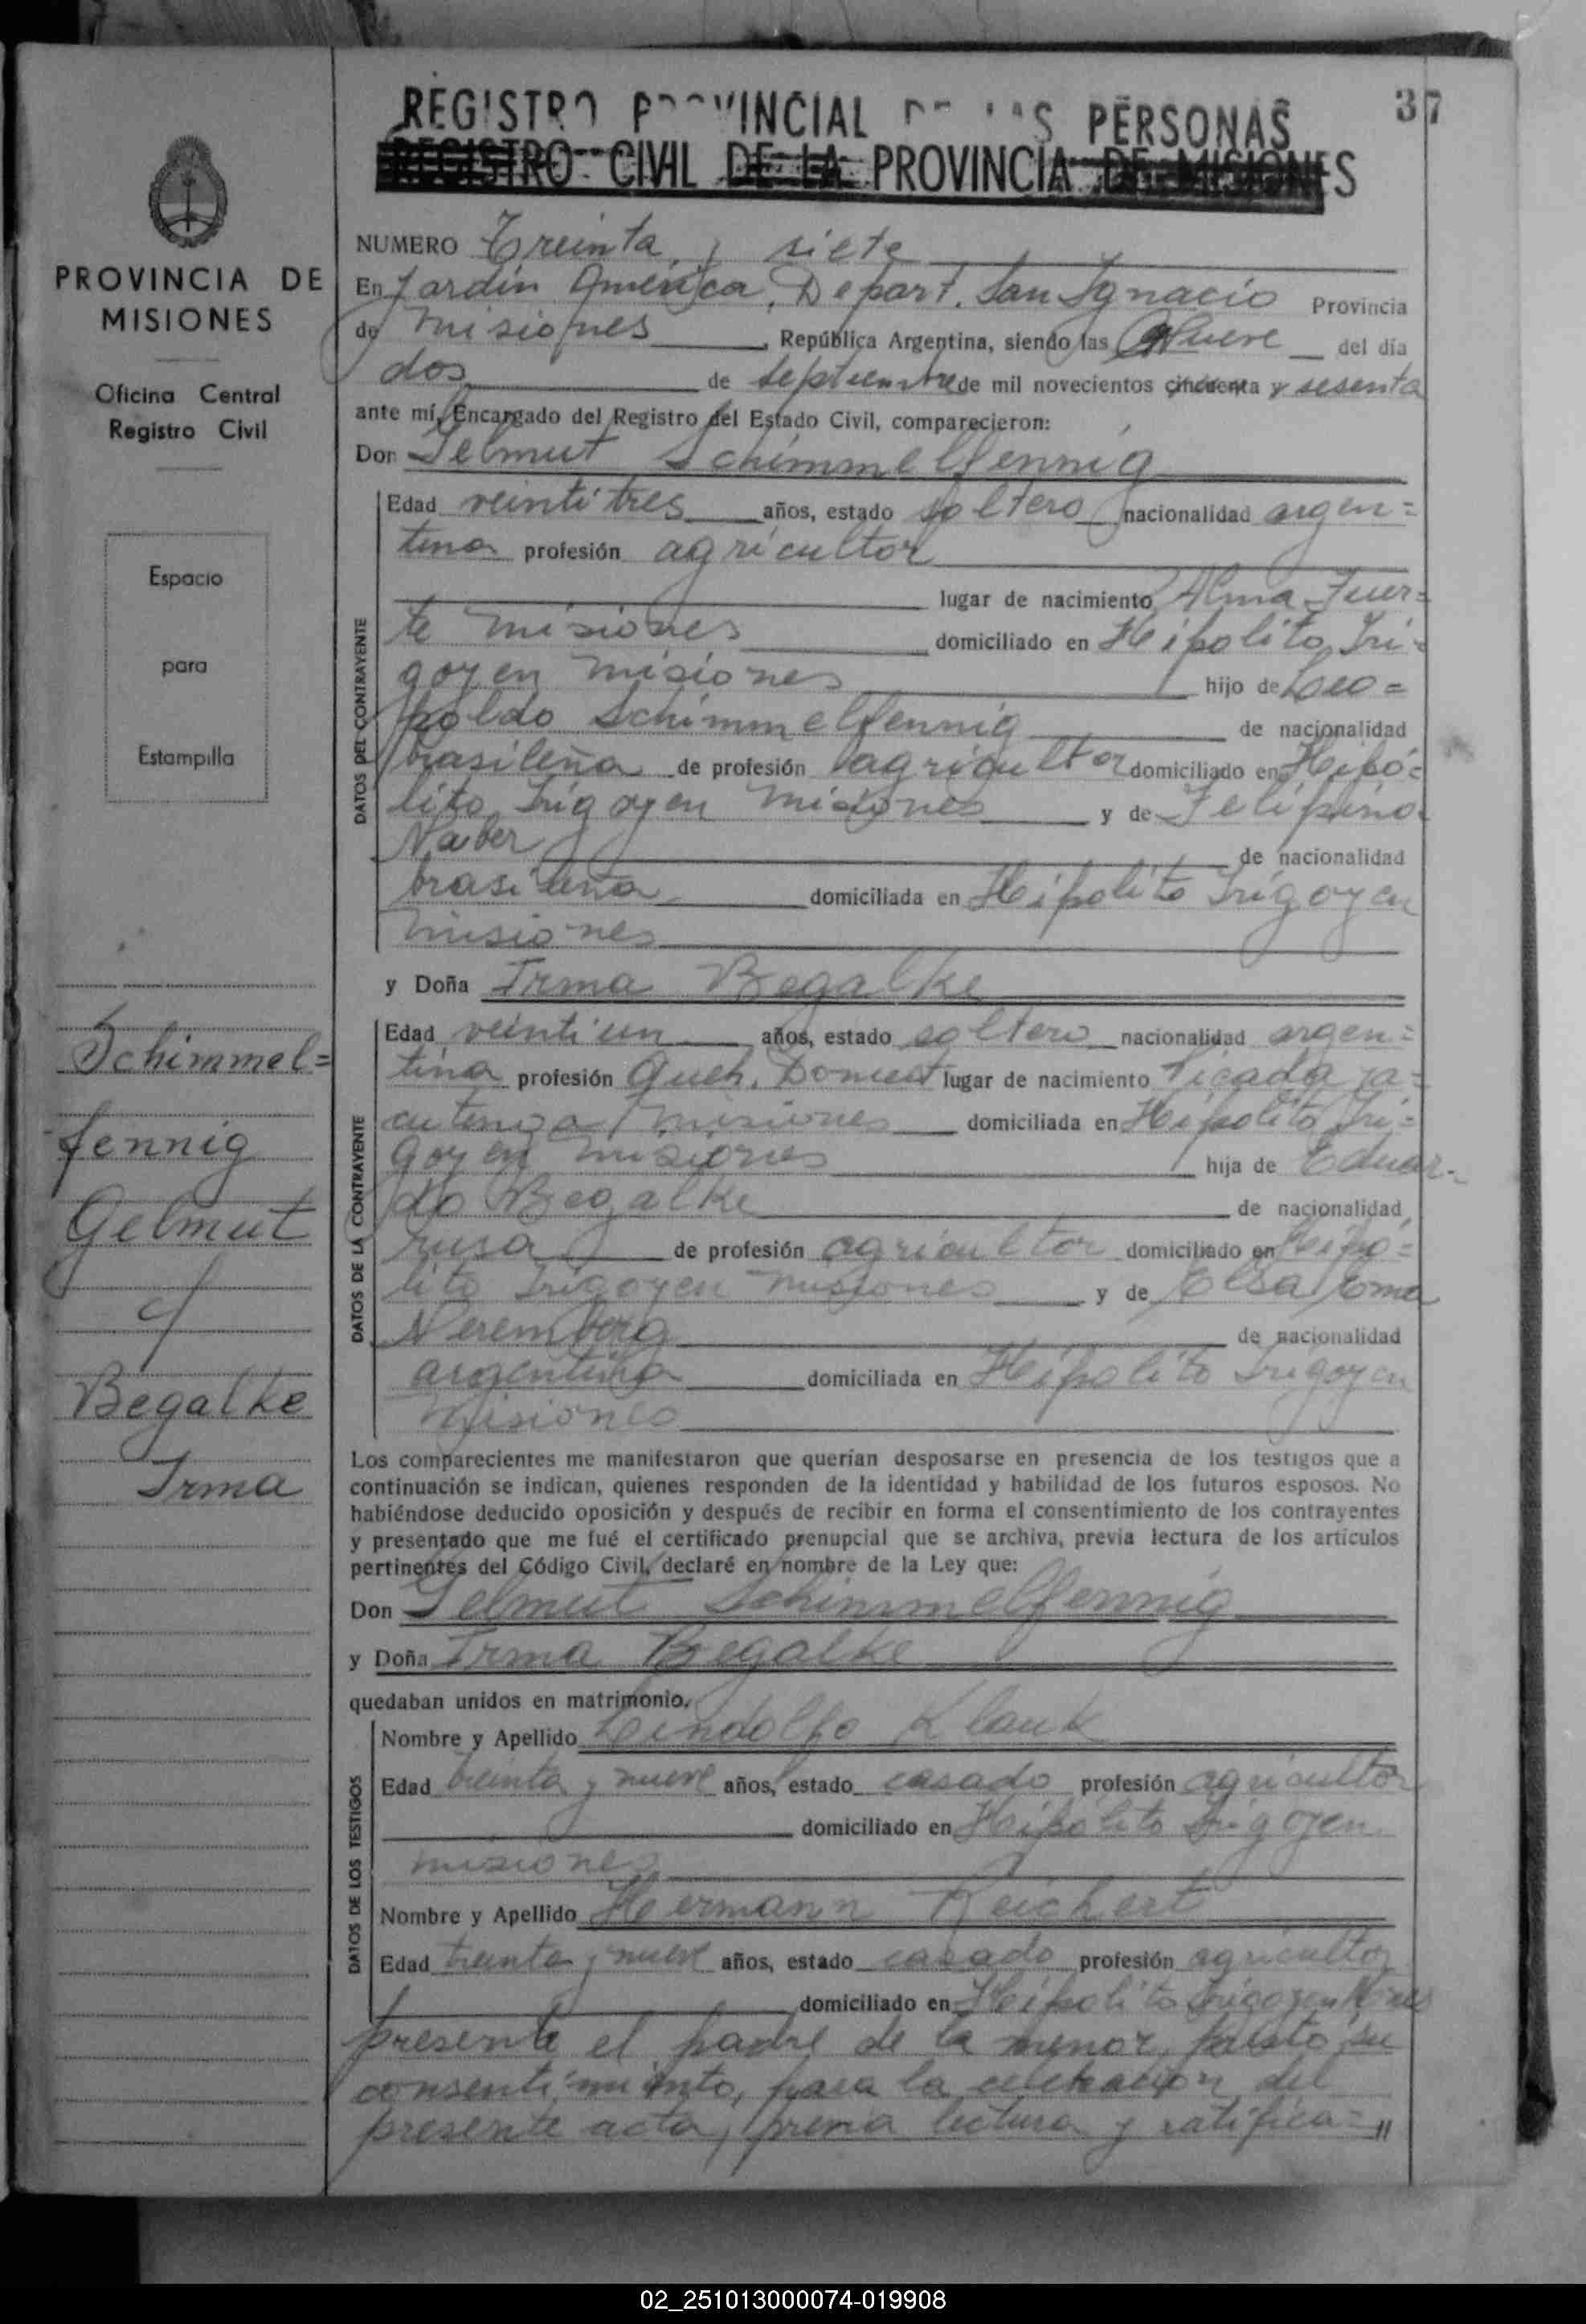 37
REGISTRO PROVINCIAL DE LAS PERSONAS
REGISTRO CIVIL DE LA PROVINCIA DE MISIONES
PROVINCIA DE
MISIONES
Oficina Central
Registro Civil
Espacio
para
Estampilla
Schimmel=
fennig
Gelmut
y
Begalke
Irma
NUMERO Treinta y siete
En Jardín América, Depart. San Ignacio Provincia
de Misiones, República Argentina, siendo las nueve del día
dos de septiembre de mil novecientos cincuenta y sesenta
ante mí, Encargado del Registro del Estado Civil, comparecieron:
Don Gelmut Schimmelfennig
DATOS DEL CONTRAYENTE
Edad veintitres años, estado soltero nacionalidad argen=
tina profesión agricultor
lugar de nacimiento Alma Fuer=
te Misiones domiciliado en Heipolito Iri=
goyen Misiones hijo de Leo=
poldo Schimmelfennig de nacionalidad
brasileña de profesión agricultor domiciliado en Heipó=
lito Irigoyen Misiones y de Felipina
Naber de nacionalidad
brasileña domiciliada en Heipolito Irigoyen
Misiones
y Doña Irma Begalke
DATOS DE LA CONTRAYENTE
Edad veintiun años, estado soltero nacionalidad argen=
tina profesión Queh. Domest lugar de nacimiento Picada
Misiones domiciliada en Heipolito Iri=
goyen Misiones hija de Eduar-
do Begalke de nacionalidad
rusa de profesión agricultor domiciliado en Heipo=
lito Irigoyen Misiones y de Elsa
de nacionalidad
argentina domiciliada en Heipolito Irigoyen
Misiones
Los comparecientes me manifestaron que querían desposarse en presencia de los testigos que a
continuación se indican, quienes responden de la identidad y habilidad de los futuros esposos. No
habiéndose deducido oposición y después de recibir en forma el consentimiento de los contrayentes
y presentado que me fué el certificado prenupcial que se archiva, previa lectura de los artículos
pertinentes del Código Civil, declaré en nombre de la Ley que:
Don Gelmut Schimmelfennig
y Doña Irma Begalke
quedaban unidos en matrimonio.
DATOS DE LOS TESTIGOS
Nombre y Apellido Lindolfo Klauk
Edad treinta y nueve años, estado casado profesión agricultor
domiciliado en Heipolito Irigoyen
Misiones
Nombre y Apellido Hermann Reichert
Edad treinta y nueve años, estado casado profesión agricultor
domiciliado en Heipolito Irigoyen
presente el padre de la menor, presto su
consentimiento, para la celebración del
presente acta, previa lectura y ratifica="
02_251013000074-019908